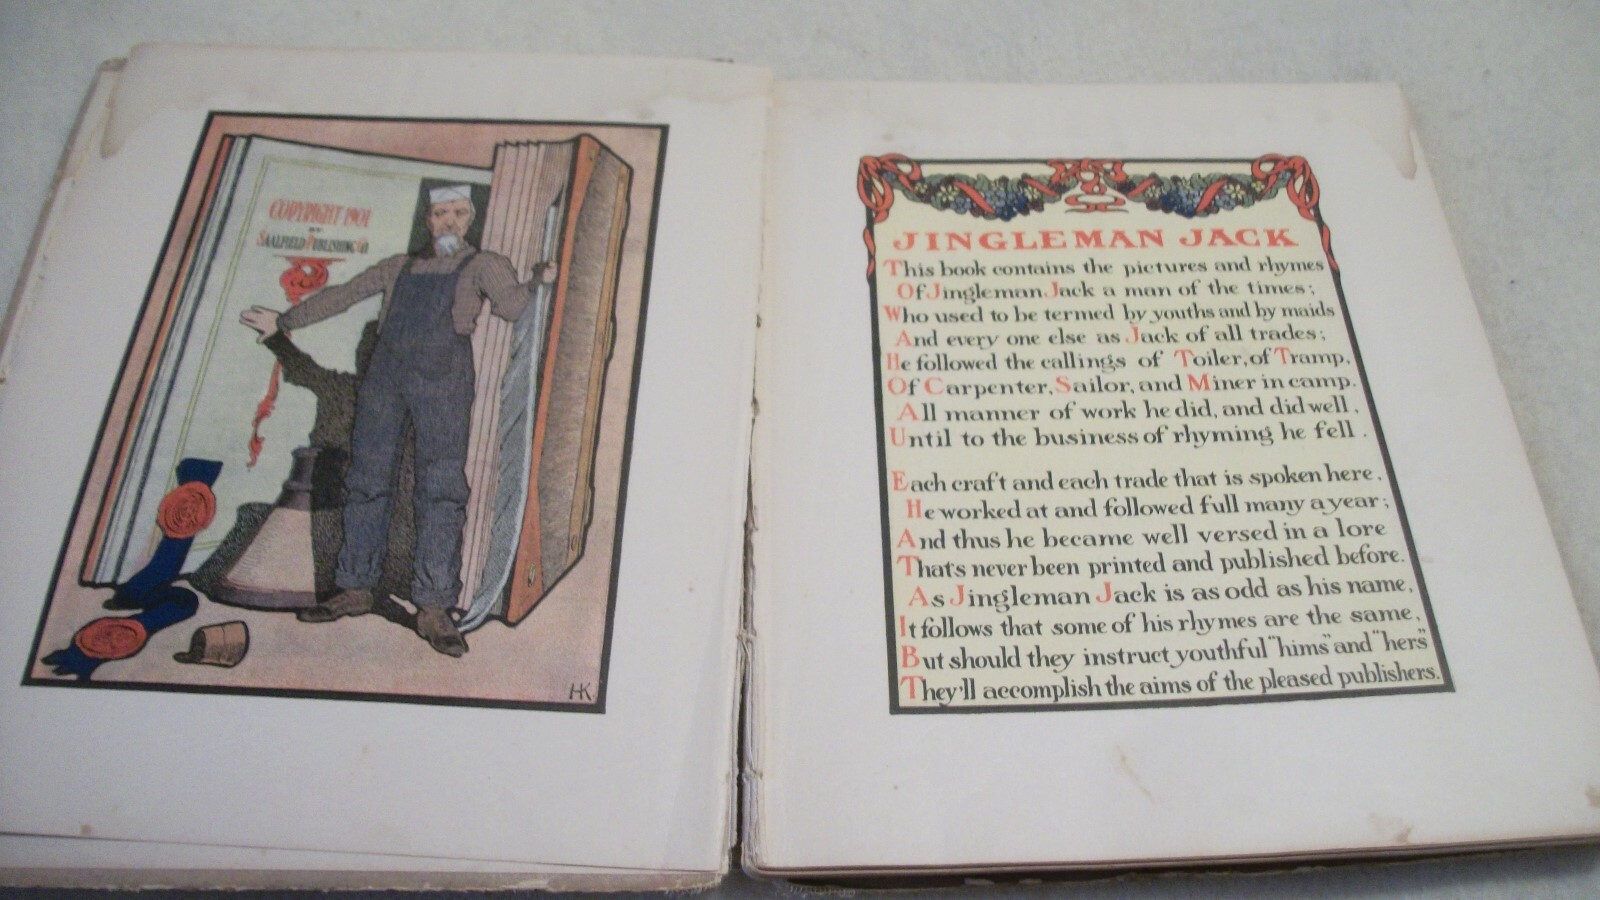 COPYRIGHT 1901
BY
SAALFIELD PUBLISHING CO.
HK
JINGLEMAN JACK
This book contains the pictures and rhymes
Of Jingleman Jack a man of the times;
Who used to be termed by youths and by maids
And every one else as Jack of all trades;
He followed the callings of Toiler, of Tramp,
Of Carpenter, Sailor, and Miner in camp.
All manner of work he did, and did well,
Until to the business of rhyming he fell.
Each craft and each trade that is spoken here,
He worked at and followed full many a year;
And thus he became well versed in a lore
That's never been printed and published before.
As Jingleman Jack is as odd as his name,
It follows that some of his rhymes are the same,
But should they instruct youthful "hims" and "hers"
They'll accomplish the aims of the pleased publishers.